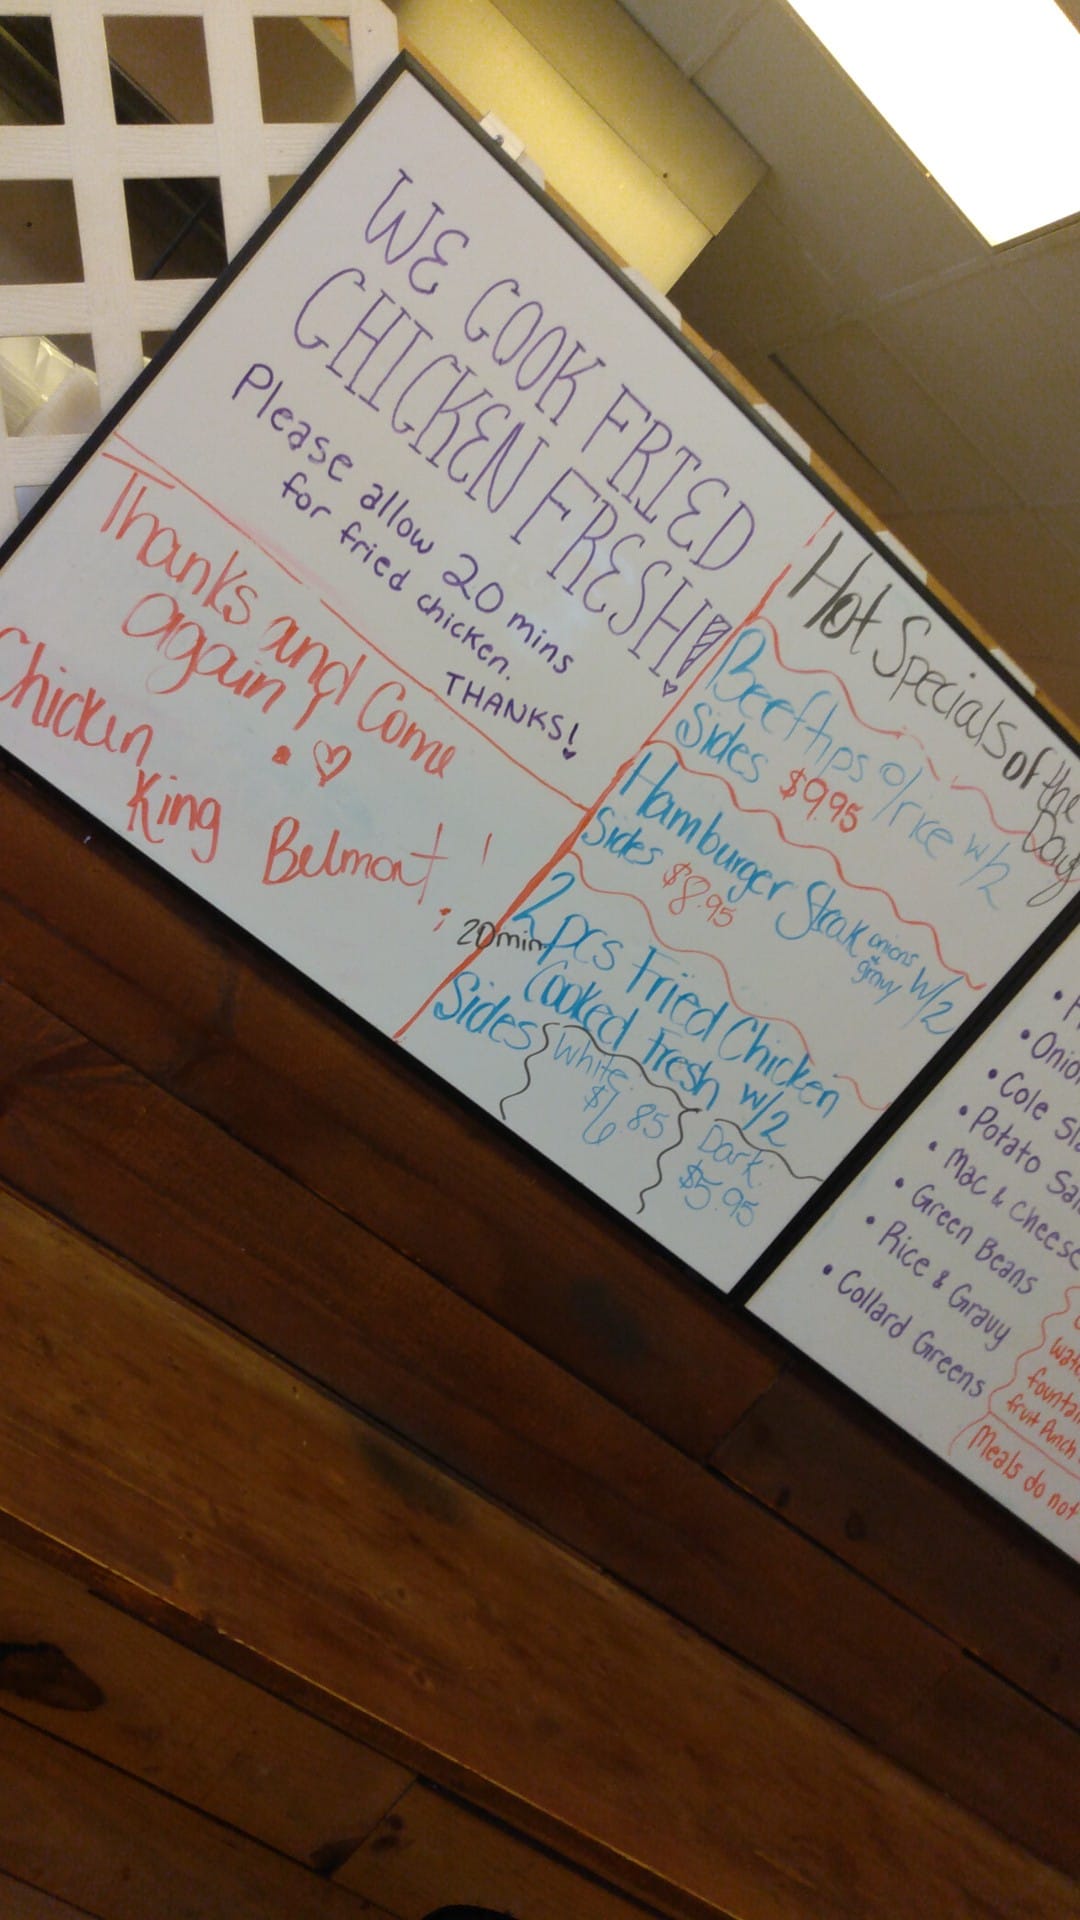 WE COOK FRIED
CHICKEN FRESH!
Please allow 20 mins
for fried chicken.
THANKS!
Thanks and Come
again!
Chicken
King Belmont!
Hot Specials of the
Day
Beef tips o/rice w/2
Sides $9.95
Hamburger Steak onions & gravy w/2
Sides $8.95
20min
2pcs Fried Chicken
Cooked Fresh w/2
Sides
White:
$6.85
Dark:
$5.95
• Onio
• Cole Sl
• Potato Sa
• Mac & Cheese
• Green Beans
• Rice & Gravy
• Collard Greens
wate
fountai
fruit Punch
Meals do not